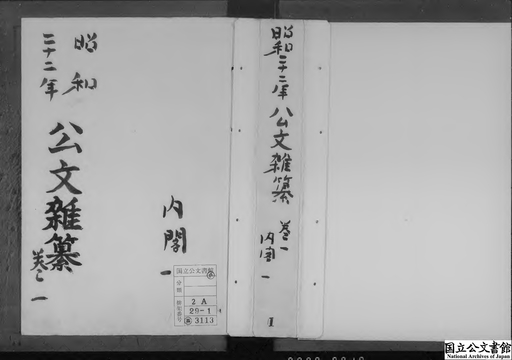 昭和
二十二年
公文雑纂
巻一
内閣
一
国立公文書館
分類
排架番号
2 A
29-1
3113
昭和二十二年公文雑纂 巻一 内閣 一
1
国立公文書館
National Archives of Japan